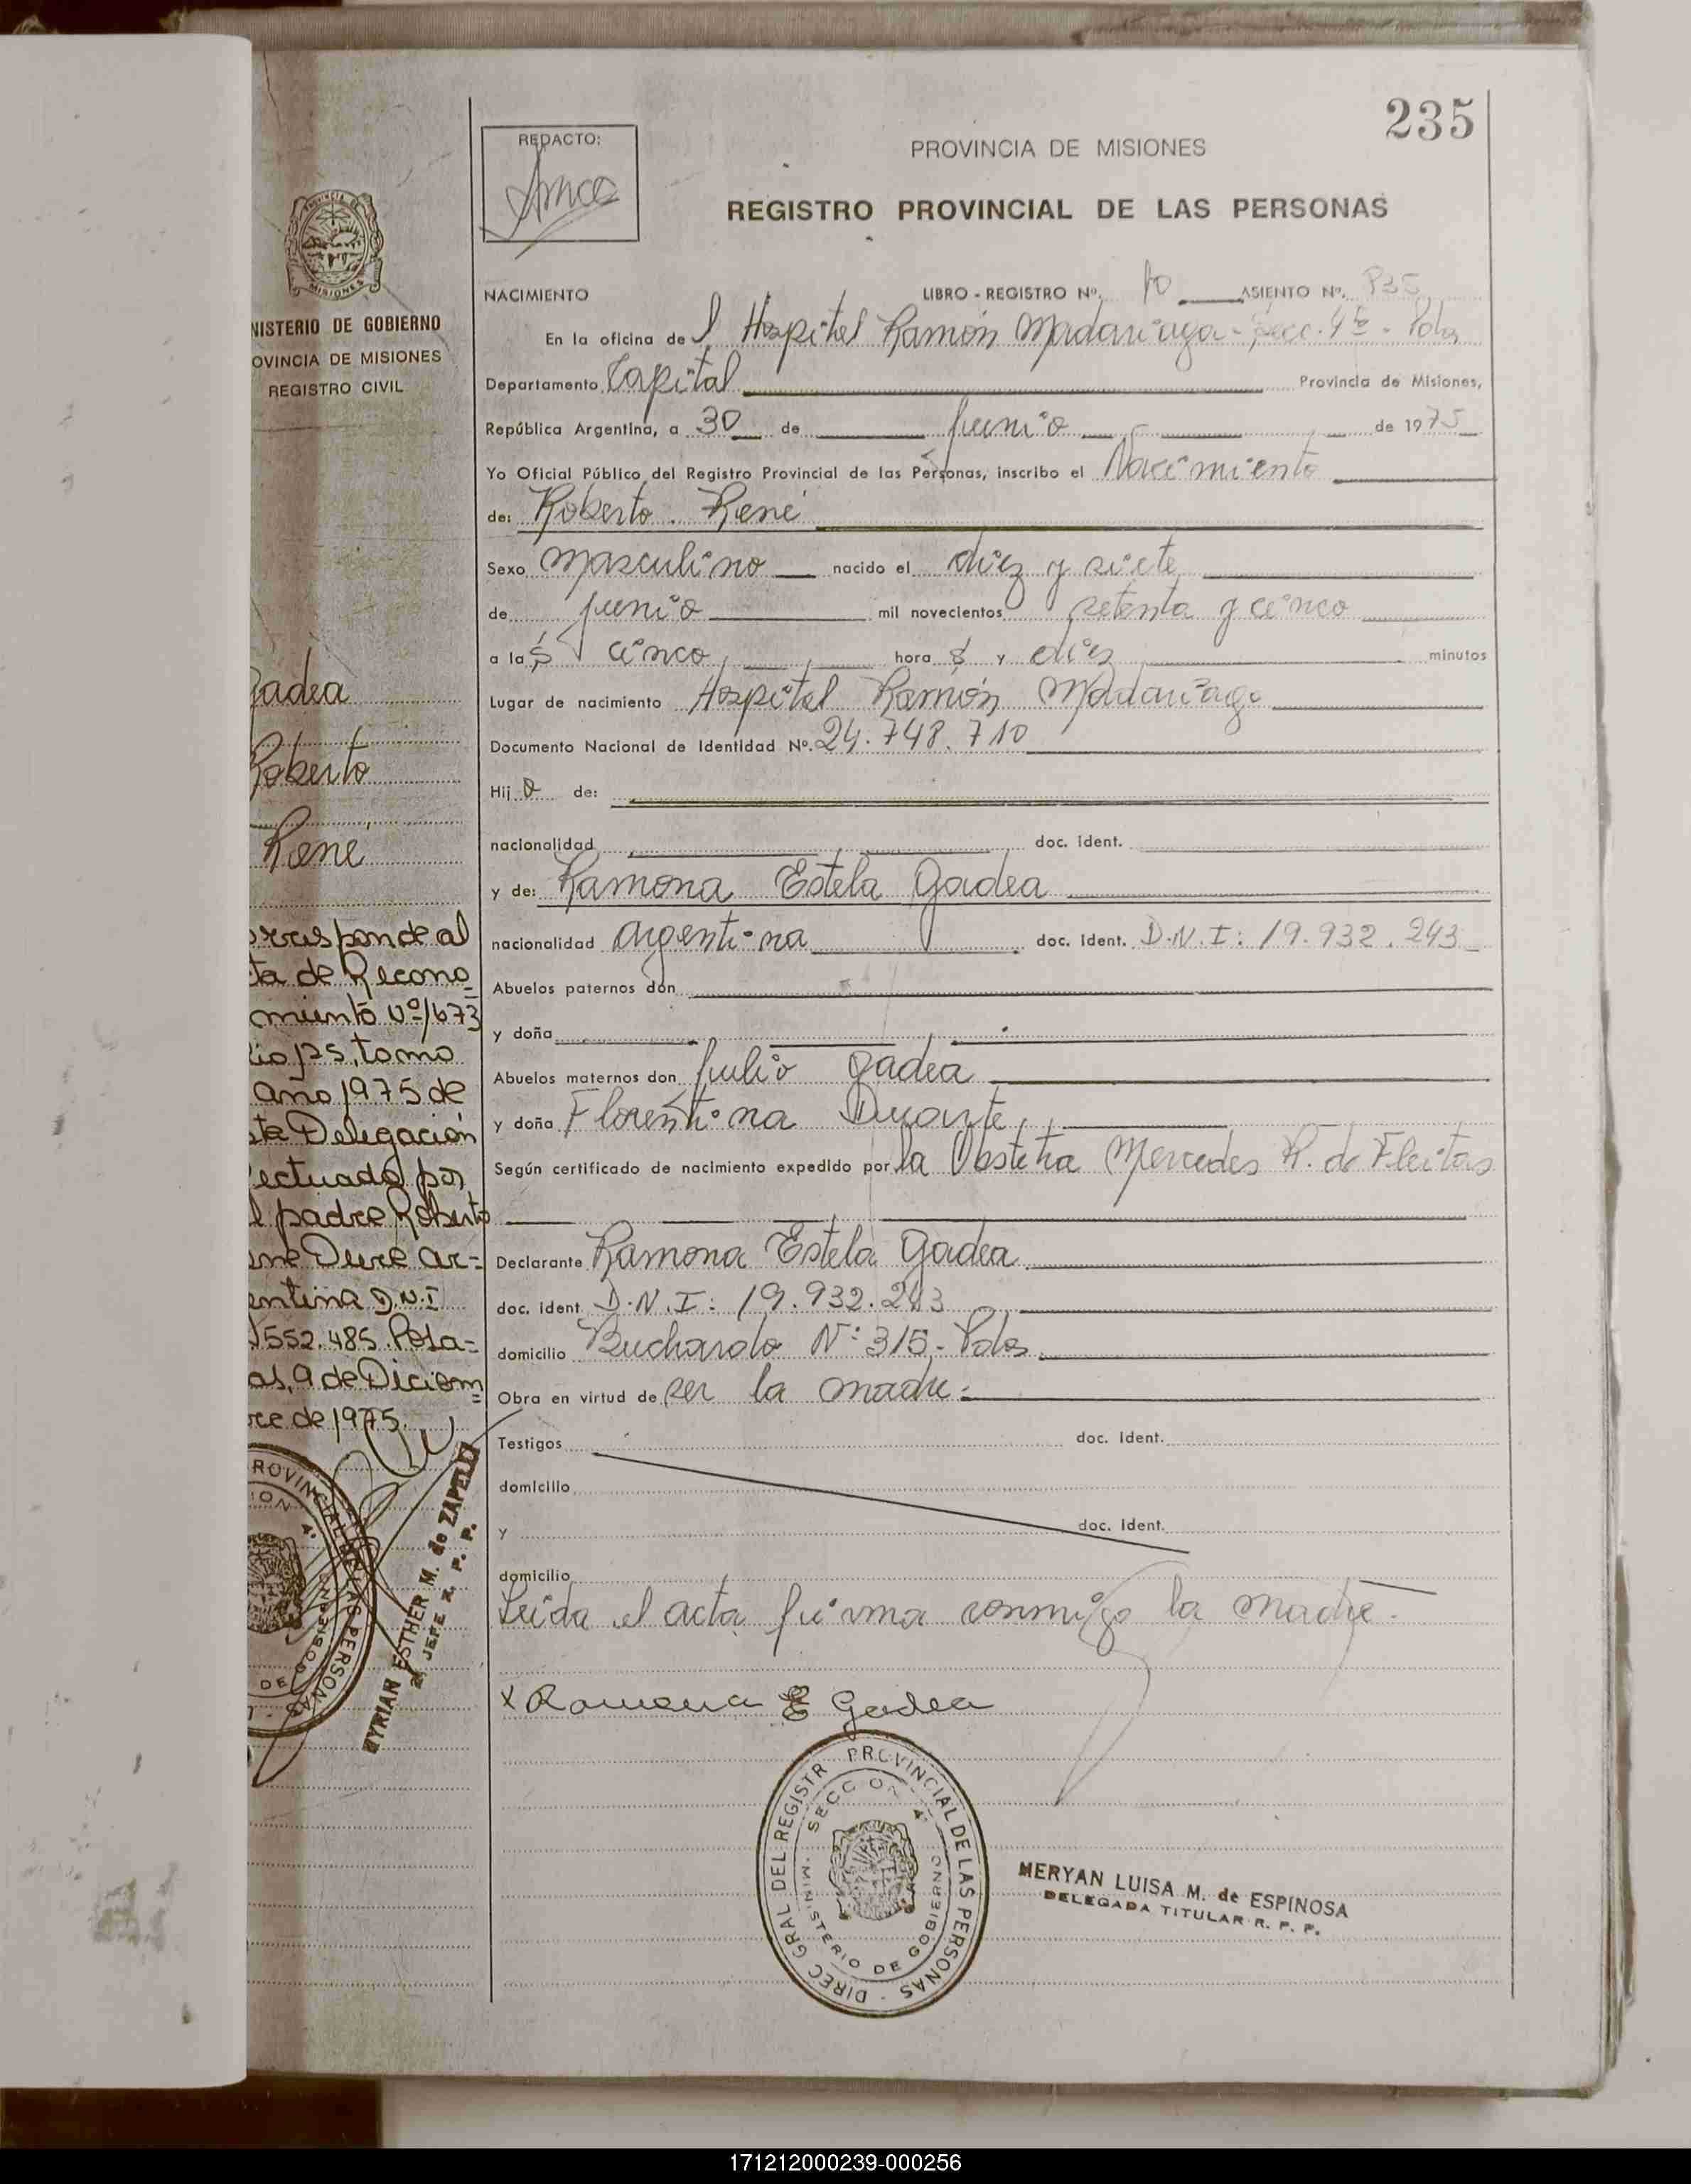 235
REDACTO:
PROVINCIA DE MISIONES
REGISTRO PROVINCIAL DE LAS PERSONAS
NACIMIENTO LIBRO - REGISTRO Nº. 10 ASIENTO Nº.
En la oficina del Hospital Ramón Madariaga - Secc. 4ta - Pdas
Departamento Capital Provincia de Misiones,
República Argentina, a 30 de junio de 1975
Yo Oficial Público del Registro Provincial de las Personas, inscribo el Nacimiento
de: Roberto René
Sexo masculino nacido el diez y siete
de junio mil novecientos setenta y cinco
a las cinco hora s y diez minutos
Lugar de nacimiento Hospital Ramón Madariaga
Documento Nacional de Identidad Nº. 24.748.710
Hijo de:
nacionalidad doc. ident.
y de: Ramona Estela Gadea
nacionalidad argentina doc. ident. D.N.I: 19.932.243
Abuelos paternos don
y doña
Abuelos maternos don Julio Gadea
y doña Florentina Duarte
Según certificado de nacimiento expedido por la Obstetra Mercedes R. de Fleitas
Declarante Ramona Estela Gadea
doc. ident. D.N.I: 19.932.243
domicilio Buchardo Nº 315 - Pdas
Obra en virtud de ser la madre.
Testigos doc. ident.
domicilio
y doc. ident.
domicilio
Leida el acta firma conmigo la madre.
x Ramona E Gadea
DIREC GRAL DEL REGISTR PROVINCIAL DE LAS PERSONAS
SECCION 4ª
MINISTERIO DE GOBIERNO
MERYAN LUISA M. de ESPINOSA
DELEGADA TITULAR R. P. P.
MISIONES
NISTERIO DE GOBIERNO
OVINCIA DE MISIONES
REGISTRO CIVIL
Gadea
Roberto
René
orresponde al
ta de Recono
miento Nº 1673
lio 125, tomo
año 1975 de
sta Delegación
ectuado por
l padre Roberto
ené Duré ar=
entina D.N.I
552.485. Posa=
as, 9 de Diciem
re de 1975.
ROVINCIAL DE LAS PERSONAS
ION 4ª
DE GOBIERNO
MYRIAN ESTHER M. de ZAPELLI
2º JEFE R. P. P.
171212000239-000256